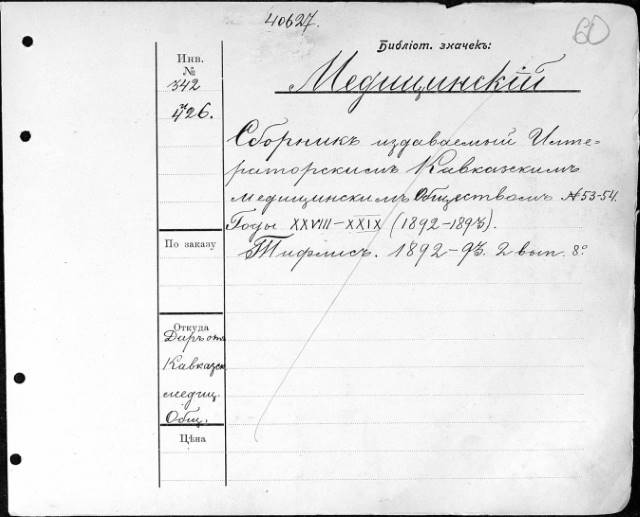 40627.
60
Библіот. значекъ:
Инв.
№
342
426.
Медицинскій
Сборникъ издаваемый Импе-
раторскимъ Кавказскимъ
медицинскимъ Обществомъ №53-54.
Годы XXVIII-XXIX (1892-1893).
Тифлисъ. 1892-93. 2 вып. 8º
По заказу
Откуда
Даръ отъ
Кавказск.
медиц.
Общ.
Цѣна